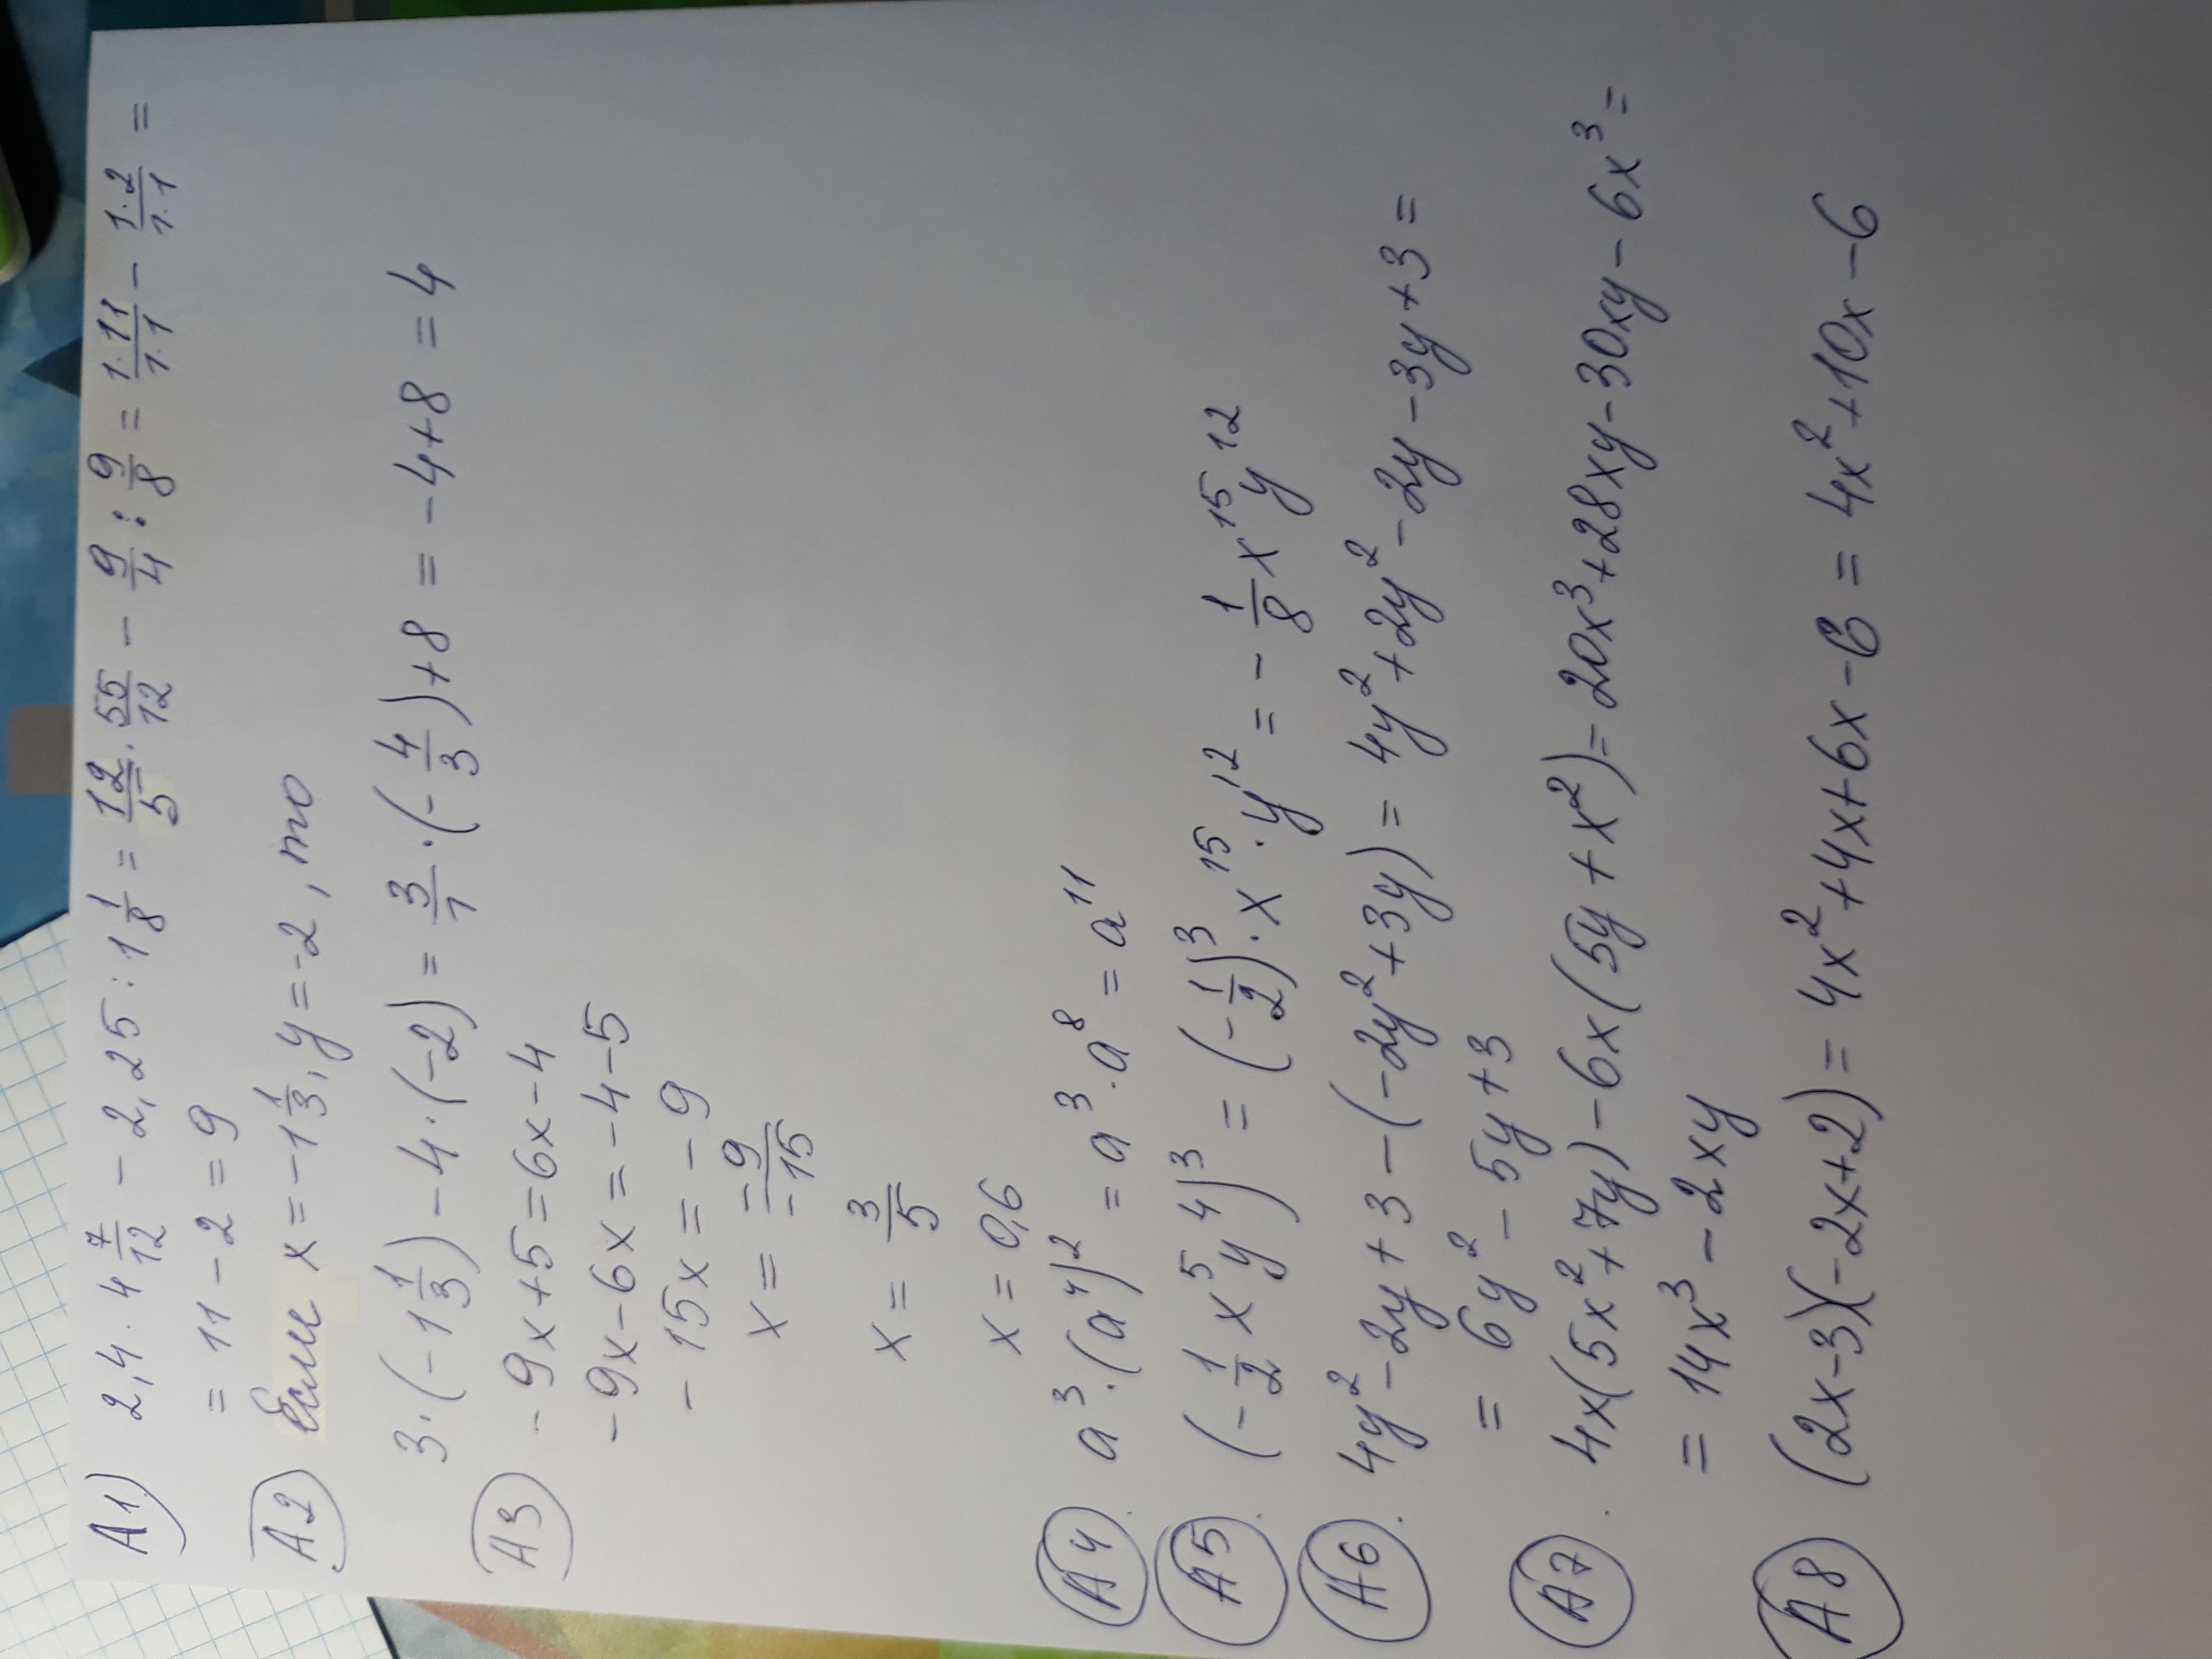 А1) 2,4 · 4 7/12 − 2,25 : 1 1/8 = 12/5 · 55/12 − 9/4 : 9/8 = 1·11/1·1 − 1·2/1·1 =
= 11 − 2 = 9
А2 Если x = −1 1/3, y = −2, то
3·(−1 1/3) − 4·(−2) = 3/1 · (−4/3) + 8 = −4 + 8 = 4
А3 −9x + 5 = 6x − 4
−9x − 6x = −4 − 5
−15x = −9
x = −9/−15
x = 3/5
x = 0,6
А4. a³ · (a⁴)² = a³ · a⁸ = a¹¹
А5. (−1/2 x⁵y⁴)³ = (−1/2)³ · x¹⁵ · y¹² = −1/8 x¹⁵y¹²
А6. 4y² − 2y + 3 − (−2y² + 3y) = 4y² + 2y² − 2y − 3y + 3 =
= 6y² − 5y + 3
А7. 4x(5x² + 7y) − 6x(5y + x²) = 20x³ + 28xy − 30xy − 6x³ =
= 14x³ − 2xy
А8 (2x−3)(−2x+2) = 4x² + 4x + 6x − 6 = 4x² + 10x − 6